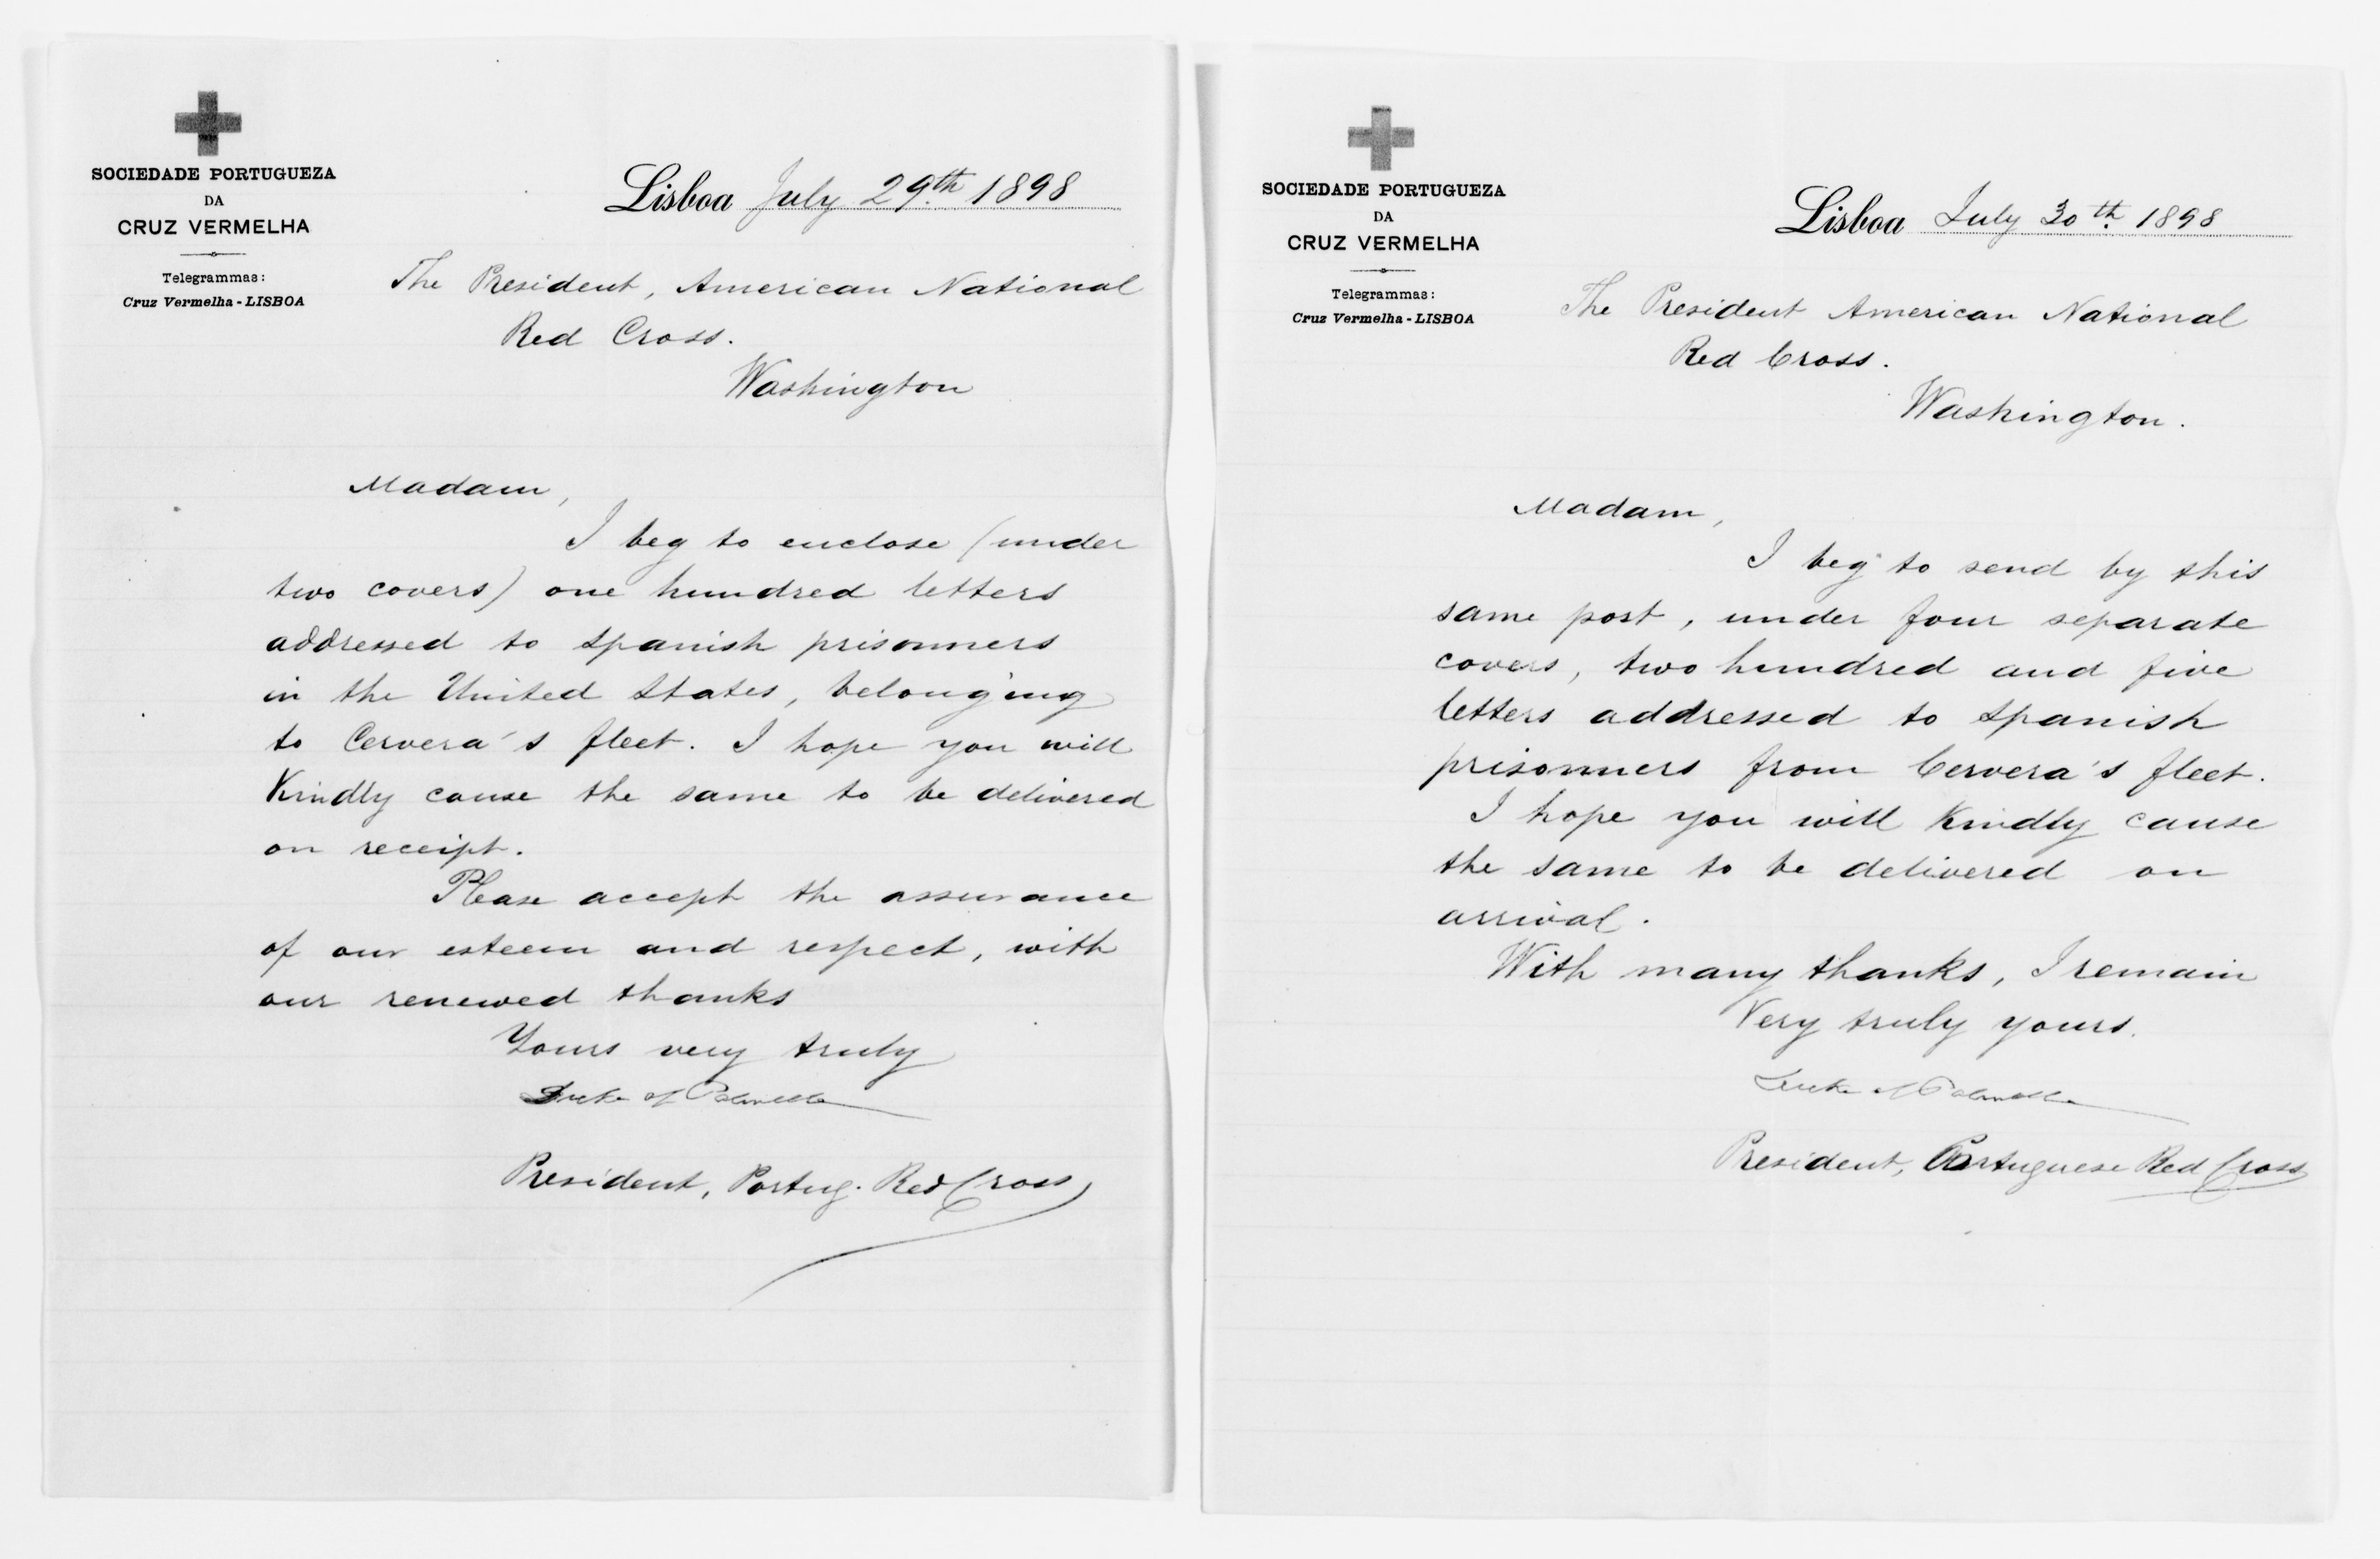 SOCIEDADE PORTUGUEZA
DA
CRUZ VERMELHA
Telegrammas:
Cruz Vermelha - LISBOA
Lisboa July 29th. 1898
The President, American National
Red Cross.
Washington
Madam,
I beg to enclose (under
two covers) one hundred letters
addressed to Spanish prisonners
in the United States, belonging
to Cervera's fleet. I hope you will
Kindly cause the same to be delivered
on receipt.
Please accept the assurance
of our esteem and respect, with
our renewed thanks
Yours very truly
Duke of Palmella
President, Portug. Red Cross
SOCIEDADE PORTUGUEZA
DA
CRUZ VERMELHA
Telegrammas:
Cruz Vermelha - LISBOA
Lisboa July 30th. 1898
The President American National
Red Cross.
Washington.
Madam,
I beg to send by this
same post, under four separate
covers, two hundred and five
letters addressed to Spanish
prisonners from Cervera's fleet.
I hope you will Kindly cause
the same to be delivered on
arrival.
With many thanks, I remain
Very truly yours.
Duke of Palmella
President, Portuguese Red Cross